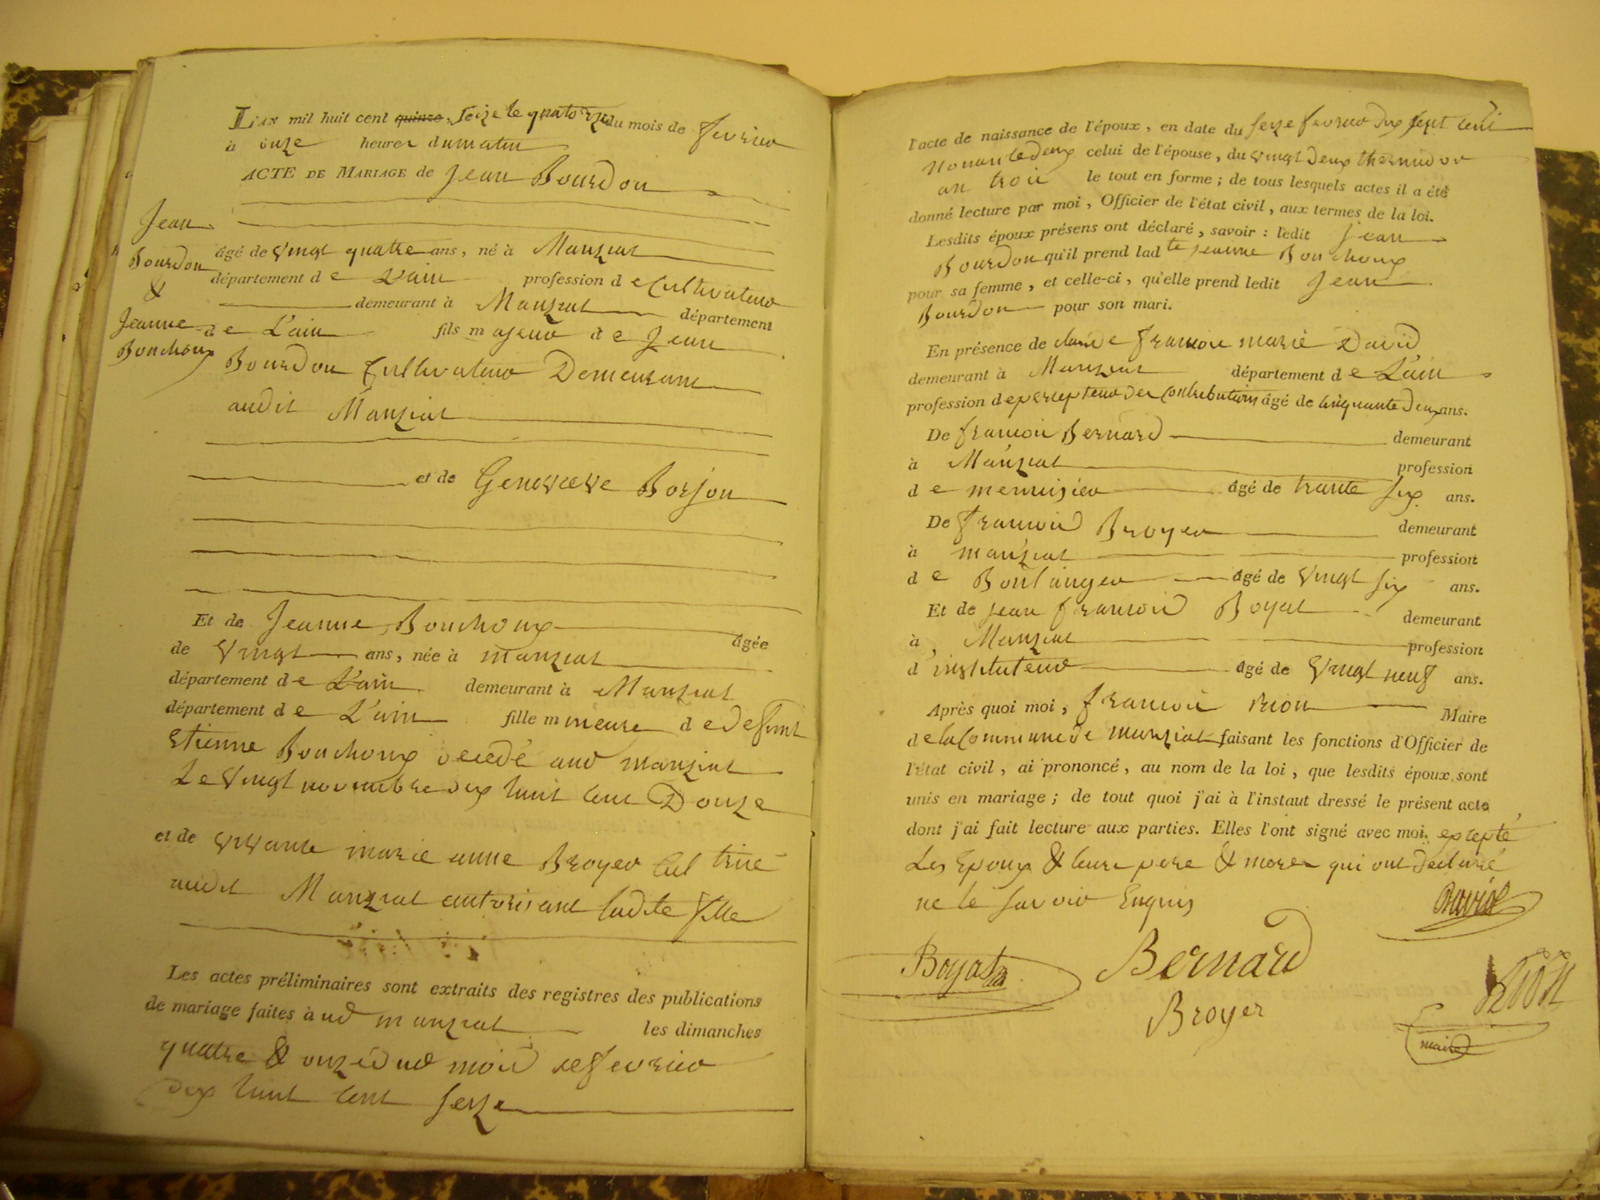 L'AN mil huit cent quinze, seize le quatorze du mois de fevrier
à onze heures du matin
ACTE DE MARIAGE de Jean Bourdon
Jean
Bourdon
&
Jeanne
Bonchoux
âgé de vingt quatre ans, né à Manziat
département de L'ain profession de Cultivateur
demeurant à Manziat département
de L'ain fils majeur de Jean
Bourdon Cultivateur Demeurant
audit Manziat
et de Genevieve Borjon
Et de Jeanne Bonchoux âgée
de vingt ans, née à manziat
département de L'ain demeurant à Manziat
département de L'ain fille mineure de defunt
Etienne Bonchoux decedé aud manziat
Le vingt novembre dix huit cent Douze
et de vivante marie anne Broyer
audit Manziat autorisant ladite fille
Les actes préliminaires sont extraits des registres des publications
de mariage faites à ud manziat les dimanches
quatre & onze dud mois de fevrier
dix huit cent seize
l'acte de naissance de l'époux, en date du seize fevrier dix sept cent
nonante deux celui de l'épouse, du vingt deux thermidor
an trois le tout en forme ; de tous lesquels actes il a été
donné lecture par moi, Officier de l'état civil, aux termes de la loi.
Lesdits époux présens ont déclaré, savoir : ledit Jean
Bourdon qu'il prend ladte Jeanne Bonchoux
pour sa femme, et celle-ci, qu'elle prend ledit Jean
Bourdon pour son mari.
En présence de claude francois marie David
demeurant à Manziat département de L'ain
profession de percepteur des Contributions âgé de cinquante deux ans.
De francois Bernard demeurant
à Manziat profession
de menuisier âgé de trante six ans.
De francois Broyer demeurant
à manziat profession
de Boulanger âgé de vingt six ans.
Et de jean francois Boyat demeurant
à Manziat profession
d'instituteur âgé de vingt neuf ans.
Après quoi moi, francois rion Maire
de la Commune de manziat faisant les fonctions d'Officier de
l'état civil, ai prononcé, au nom de la loi, que lesdits époux sont
unis en mariage ; de tout quoi j'ai à l'instant dressé le présent acte
dont j'ai fait lecture aux parties. Elles l'ont signé avec moi, excepté
Les Epoux & leurs pere & meres qui ont déclaré
ne le savoir Enquis
David
Boyat
Bernard
Broyer
Rion
maire